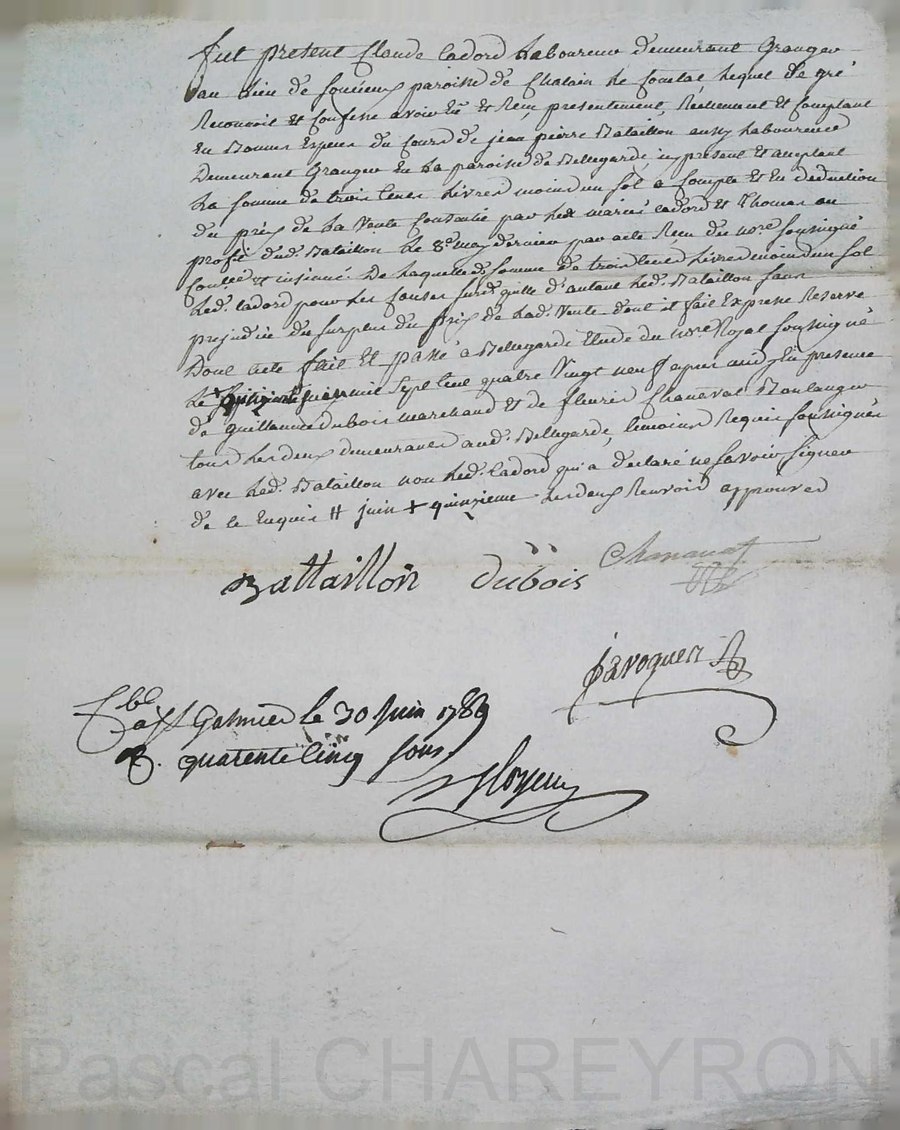 Fut present Claude Cadord Laboureur demeurant Granger
au lieu de paroisse de Chalain Le Comtal, Lequel de gré
Reconnoit et Confesse avoir Eu et Reçu presentement, Réellement et Comptant
En Bonnes Especes du Cours de jean pierre Bataillon aussy Laboureur
Demeurant Granger En La paroisse de Bellegarde, icy present Et aceptant
La somme de trois Cents Livres moins un sol a Compte Et En deduction
du prix de La Vente Consentie par Les mariés Cadord Et Thomas au
profit dud. Bataillon Le 8e may dernier par acte Reçu du nore soussigné
Conllé et insinué De Laquelle de somme de trois Cents Livres moins un sol
Led. Cadord pour Les Causes surd. quitte d'autant Led. Bataillon sans
prejudice du surplus du prix de Lad. Vente dont il fait Expresse Reserve
Dont acte fait Et passé a Bellegarde Etude du nore Royal soussigné
Le mil sept Cent quatre Vingt neuf apres midy En presence
de Guillaume dubois marchand Et de fleurie Chanavat Boulanger
tous Les deux demeurants aud. Bellegarde, temoins Requis soussignés
avec Led. Bataillon non Led. Cadord qui a declaré ne savoir signer
de ce Enquis # juin + quinzieme Les deux Renvois approuvés
Battaillon dubois Chanavat
javoguen
Cllé a St Galmier le 30 juin 1789
R. quarente cinq sous